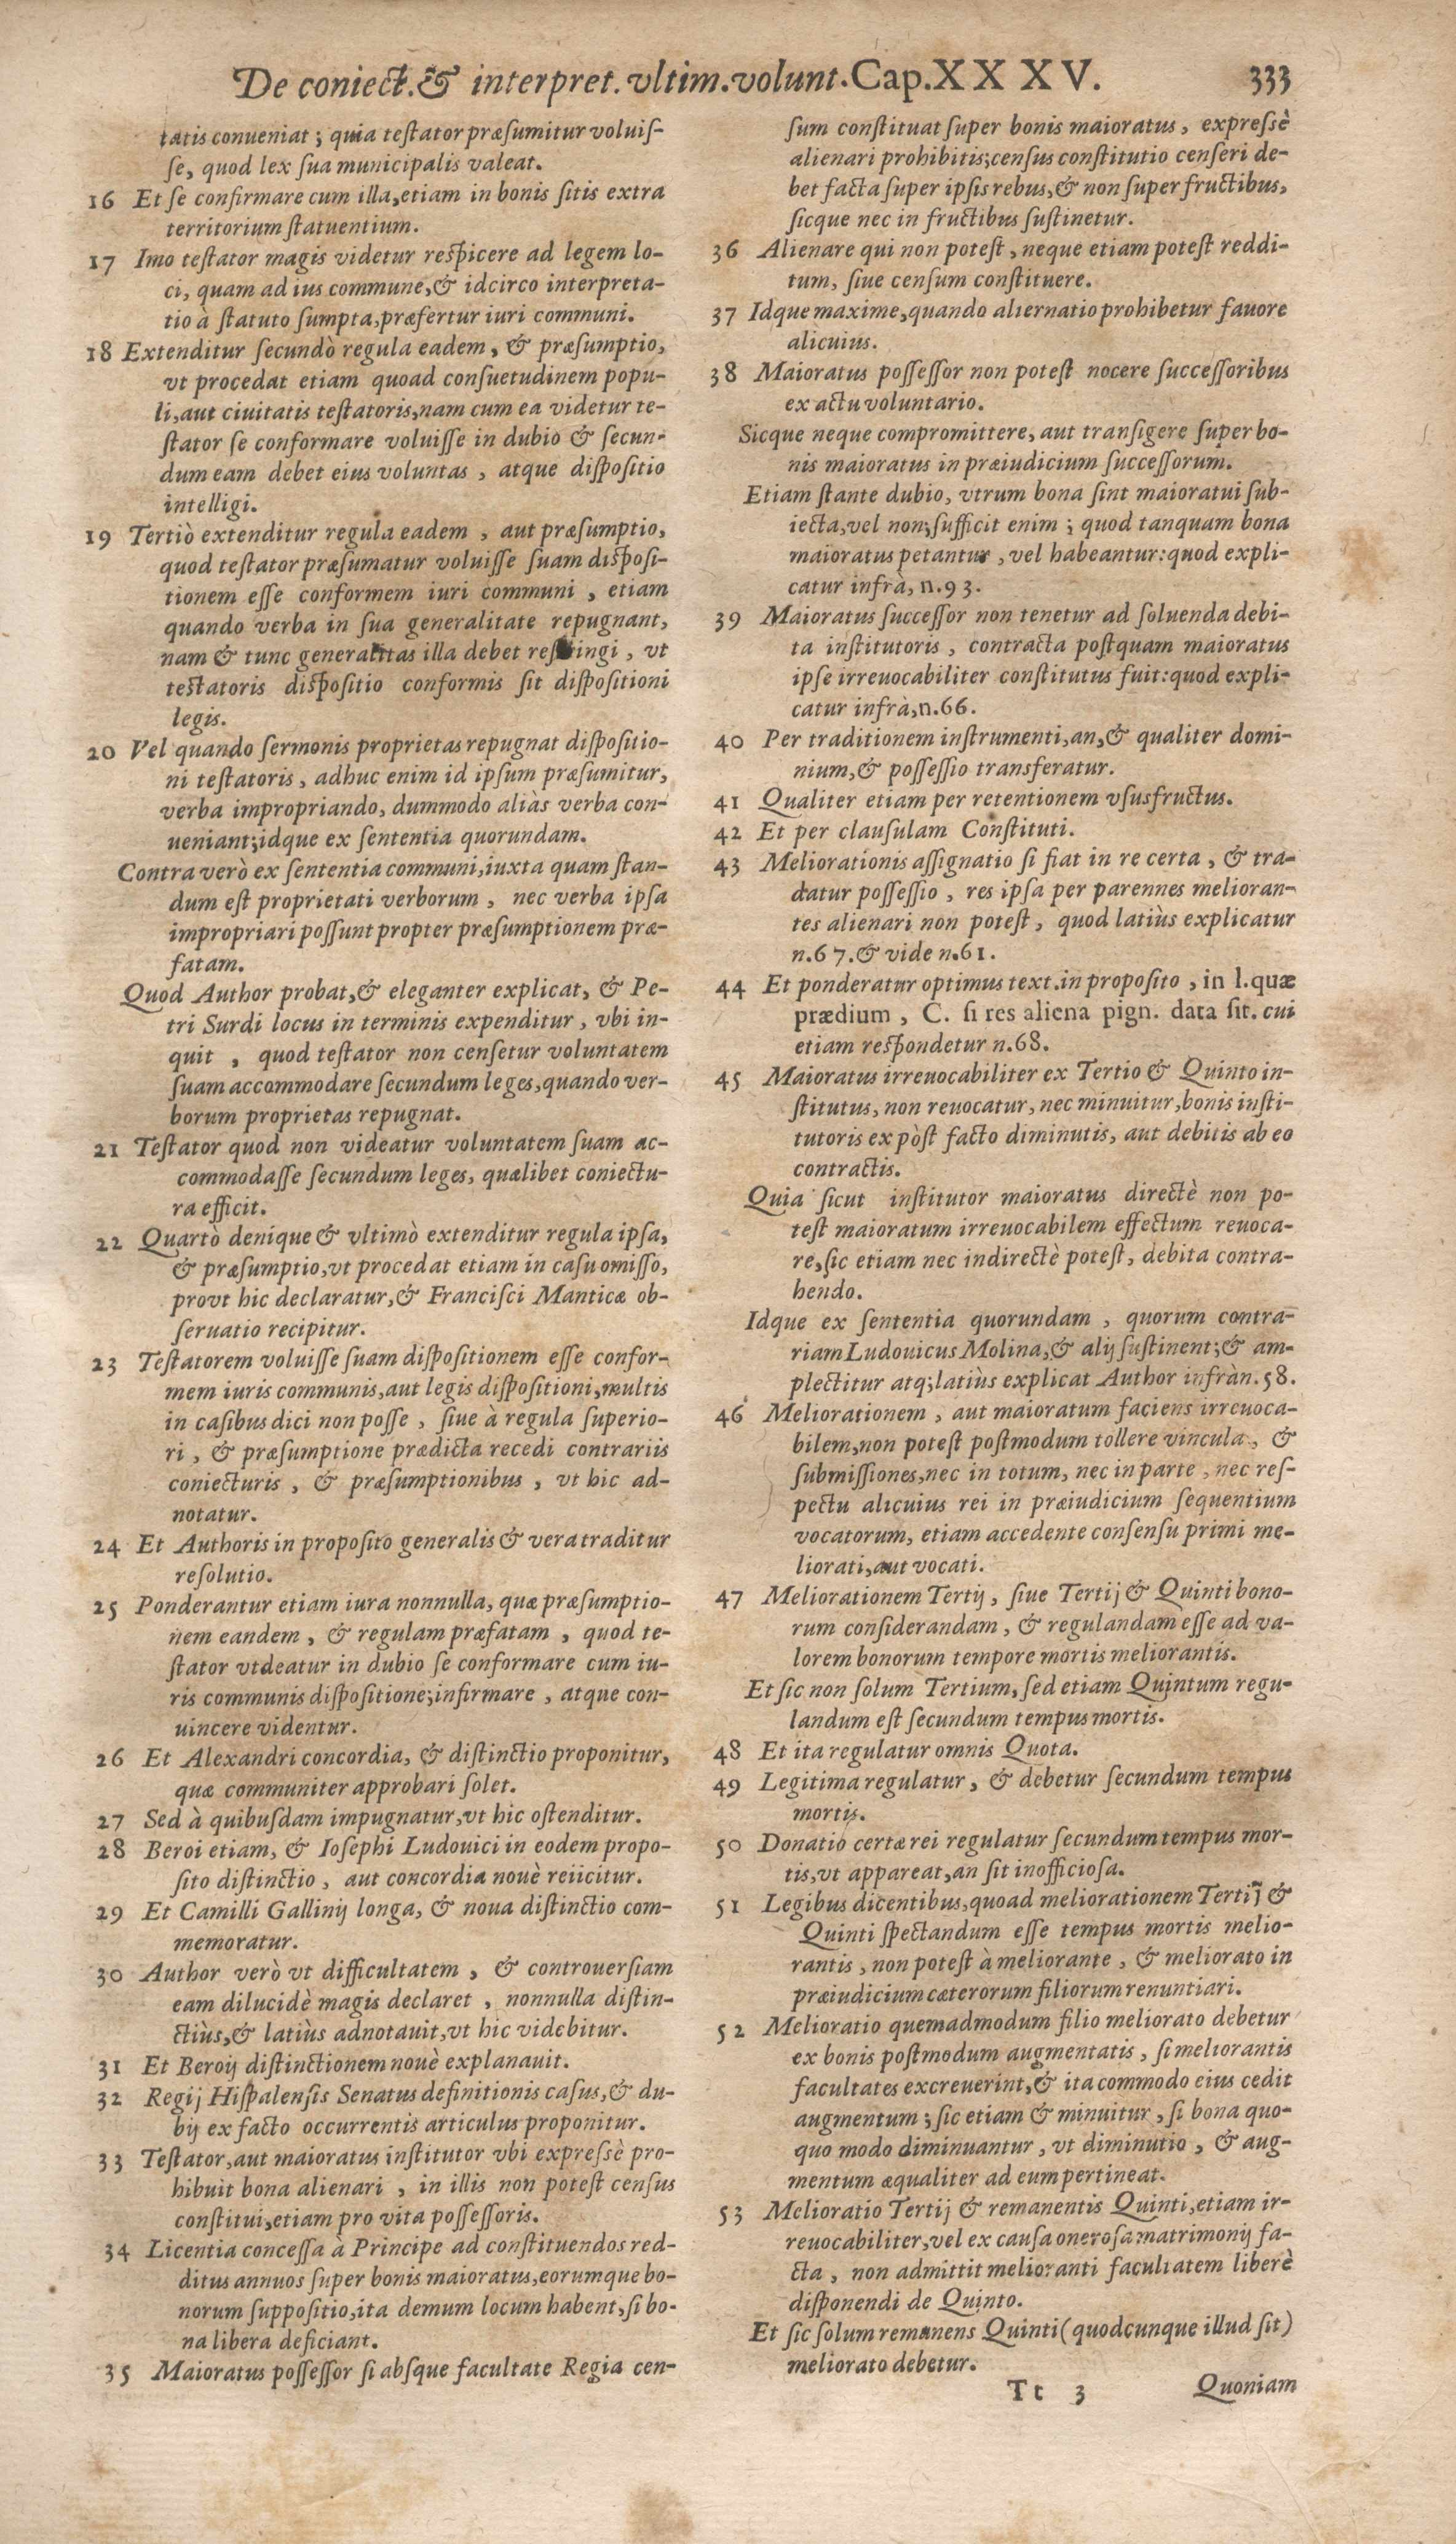 De coniect. & interpret. vltim. volunt. Cap. XXXV. 333
tatis conueniat; quia testator præsumitur voluis-
se, quod lex sua municipalis valeat.
16 Et se confirmare cum illa, etiam in bonis sitis extra
territorium statuentium.
17 Imo testator magis videtur respicere ad legem lo-
ci, quam ad ius commune, & idcirco interpreta-
tio à statuto sumpta, præfertur iuri communi.
18 Extenditur secundò regula eadem, & præsumptio,
vt procedat etiam quoad consuetudinem popu-
li, aut ciuitatis testatoris, nam cum ea videtur te-
stator se conformare voluisse in dubio & secun-
dum eam debet eius voluntas, atque dispositio
intelligi.
19 Tertiò extenditur regula eadem, aut præsumptio,
quod testator præsumatur voluisse suam disposi-
tionem esse conformem iuri communi, etiam
quando verba in sua generalitate repugnant,
nam & tunc generalitas illa debet restringi, vt
testatoris dispositio conformis sit dispositioni
legis.
20 Vel quando sermonis proprietas repugnat dispositio-
ni testatoris, adhuc enim id ipsum præsumitur,
verba impropriando, dummodo aliàs verba con-
ueniant; idque ex sententia quorundam.
Contra verò ex sententia communi, iuxta quam stan-
dum est proprietati verborum, nec verba ipsa
impropriari possunt propter præsumptionem præ-
fatam.
Quod Author probat, & eleganter explicat, & Pe-
tri Surdi locus in terminis expenditur, vbi in-
quit, quod testator non censetur voluntatem
suam accommodare secundum leges, quando ver-
borum proprietas repugnat.
21 Testator quod non videatur voluntatem suam ac-
commodasse secundum leges, quælibet coniectu-
ra efficit.
22 Quartò denique & vltimò extenditur regula ipsa,
& præsumptio, vt procedat etiam in casu omisso,
provt hic declaratur, & Francisci Manticæ ob-
seruatio recipitur.
23 Testatorem voluisse suam dispositionem esse confor-
mem iuris communis, aut legis dispositioni, multis
in casibus dici non posse, siue à regula superio-
ri, & præsumptione prædicta recedi contrariis
coniecturis, & præsumptionibus, vt hic ad-
notatur.
24 Et Authoris in proposito generalis & vera traditur
resolutio.
25 Ponderantur etiam iura nonnulla, quæ præsumptio-
nem eandem, & regulam præfatam, quod te-
stator vtdeatur in dubio se conformare cum iu-
ris communis dispositione; infirmare, atque con-
uincere videntur.
26 Et Alexandri concordia, & distinctio proponitur,
quæ communiter approbari solet.
27 Sed à quibusdam impugnatur, vt hic ostenditur.
28 Beroi etiam, & Iosephi Ludouici in eodem propo-
sito distinctio, aut concordia nouè reiicitur.
29 Et Camilli Gallinij longa, & noua distinctio com-
memoratur.
30 Author verò vt difficultatem, & controuersiam
eam dilucidè magis declaret, nonnulla distin-
ctiùs, & latiùs adnotauit, vt hic videbitur.
31 Et Beroij distinctionem nouè explanauit.
32 Regij Hispalensis Senatus definitionis casus, & du-
bij ex facto occurrentis articulus proponitur.
33 Testator, aut maioratus institutor vbi expressè pro-
hibuit bona alienari, in illis non potest census
constitui, etiam pro vita possessoris.
34 Licentia concessa à Principe ad constituendos red-
ditus annuos super bonis maioratus, eorumque bo-
norum suppositio, ita demum locum habent, si bo-
na libera deficiant.
35 Maioratus possessor si absque facultate Regia cen-
sum constituat super bonis maioratus, expressè
alienari prohibitis; census constitutio censeri de-
bet facta super ipsis rebus, & non super fructibus,
sicque nec in fructibus sustinetur.
36 Alienare qui non potest, neque etiam potest reddi-
tum, siue censum constituere.
37 Idque maxime, quando aliernatio prohibetur fauore
alicuius.
38 Maioratus possessor non potest nocere successoribus
ex actu voluntario.
Sicque neque compromittere, aut transigere super bo-
nis maioratus in præiudicium successorum.
Etiam stante dubio, vtrum bona sint maioratui sub-
iecta, vel non; sufficit enim; quod tanquam bona
maioratus petantur, vel habeantur: quod expli-
catur infrà, n. 93.
39 Maioratus successor non tenetur ad soluenda debi-
ta institutoris, contracta postquam maioratus
ipse irreuocabiliter constitutus fuit: quod expli-
catur infrà, n. 66.
40 Per traditionem instrumenti, an, & qualiter domi-
nium, & possessio transferatur.
41 Qualiter etiam per retentionem vsusfructus.
42 Et per clausulam Constituti.
43 Meliorationis assignatio si fiat in re certa, & tra-
datur possessio, res ipsa per parennes melioran-
tes alienari non potest, quod latiùs explicatur
n. 67. & vide n. 61.
44 Et ponderatur optimus text. in proposito, in l. quæ
prædium, C. si res aliena pign. data sit. cui
etiam respondetur n. 68.
45 Maioratus irreuocabiliter ex Tertio & Quinto in-
stitutus, non reuocatur, nec minuitur, bonis insti-
tutoris ex pòst facto diminutis, aut debitis ab eo
contractis.
Quia sicut institutor maioratus directè non po-
test maioratum irreuocabilem effectum reuoca-
re, sic etiam nec indirectè potest, debita contra-
hendo.
Idque ex sententia quorundam, quorum contra-
riam Ludouicus Molina, & alij sustinent; & am-
plectitur atq; latiùs explicat Author infrà n. 58.
46 Meliorationem, aut maioratum faciens irreuoca-
bilem, non potest postmodum tollere vincula, &
submissiones, nec in totum, nec in parte, nec res-
pectu alicuius rei in præiudicium sequentium
vocatorum, etiam accedente consensu primi me-
liorati, aut vocati.
47 Meliorationem Tertij, siue Tertij & Quinti bono-
rum considerandam, & regulandam esse ad va-
lorem bonorum tempore mortis meliorantis.
Et sic non solum Tertium, sed etiam Quintum regu-
landum est secundum tempus mortis.
48 Et ita regulatur omnis Quota.
49 Legitima regulatur, & debetur secundum tempus
mortis.
50 Donatio certæ rei regulatur secundum tempus mor-
tis, vt appareat, an sit inofficiosa.
51 Legibus dicentibus, quoad meliorationem Tertij &
Quinti spectandum esse tempus mortis melio-
rantis, non potest à meliorante, & meliorato in
præiudicium cæterorum filiorum renuntiari.
52 Melioratio quemadmodum filio meliorato debetur
ex bonis postmodum augmentatis, si meliorantis
facultates excreuerint, & ita commodo eius cedit
augmentum; sic etiam & minuitur, si bona quo-
quo modo diminuantur, vt diminutio, & aug-
mentum æqualiter ad eum pertineat.
53 Melioratio Tertij & remanentis Quinti, etiam ir-
reuocabiliter, vel ex causa onerosa matrimonij fa-
cta, non admittit melioranti facultatem liberè
disponendi de Quinto.
Et sic solum remanens Quinti (quodcunque illud sit)
meliorato debetur.
Tt 3 Quoniam